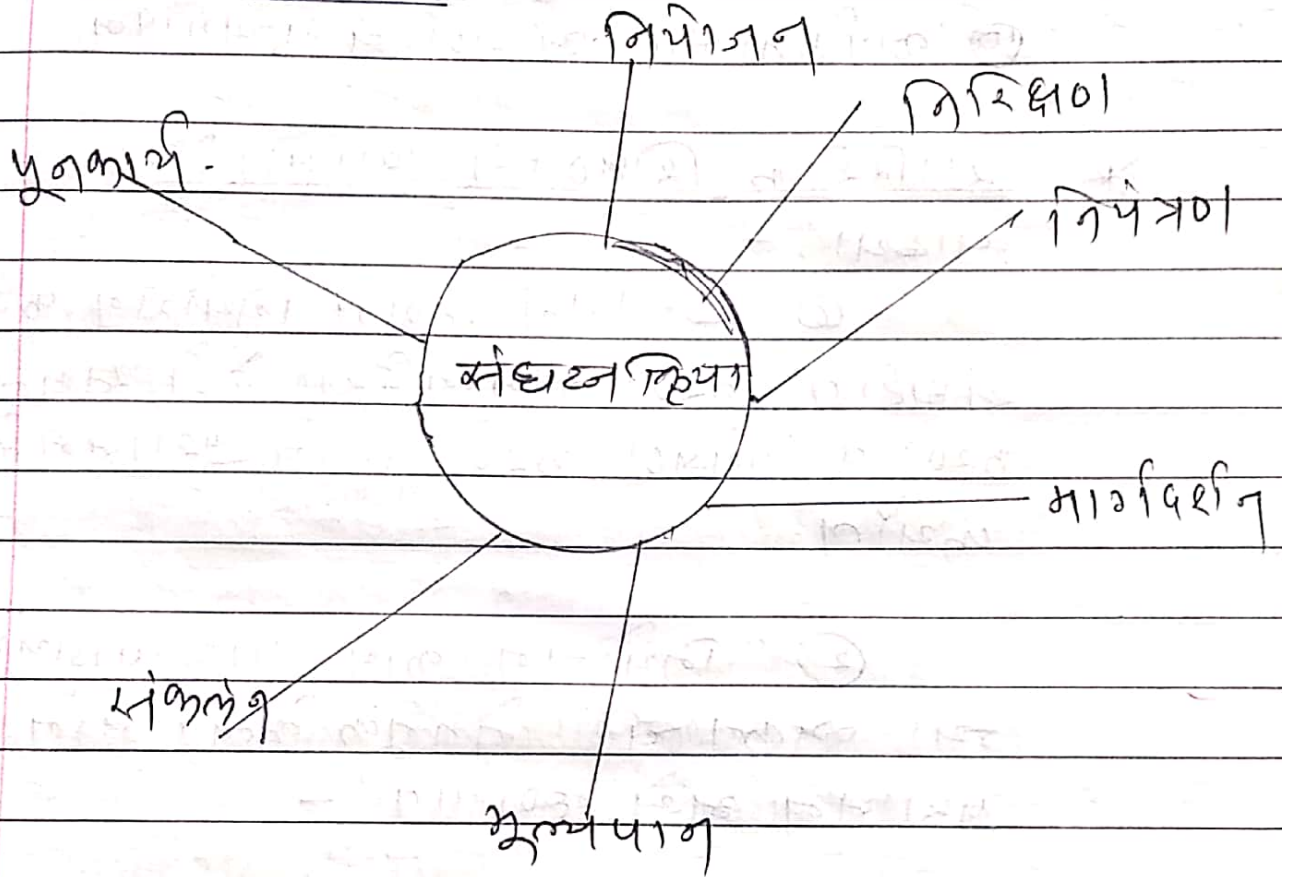 नियोजन
निरिक्षण
पूनकार्य -
नियंत्रण
संघटन क्रिया
मार्गदर्शन
संकलंन
मूल्यंपान